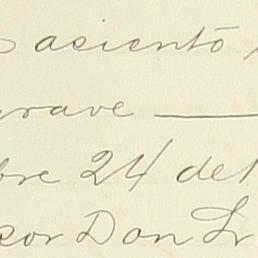 asiento
grave —
bre 24 del
sor Don Fr